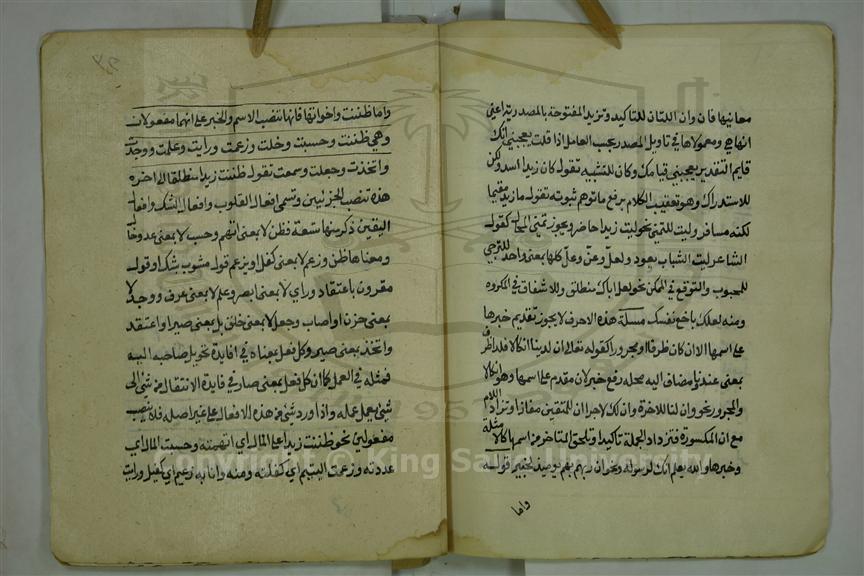 معانيها فان وان اللتان للتاكيد وتزيد المفتوحة بالمصدرية اعني
انها هي ومعمولاها في تاويل المصدر بحسب العامل اذا قلت يعجبني انك
قايم التقدير يعجبني قيامك وكان للتشبيه تقول كان زيدا اسد ولكن
للاستدراك وهو تعقيب الكلام برفع ما توهم ثبوته تقول ما زيد مقيما
لكنه مسافر وليت للتمني نحو ليت زيدا حاضر ويجوز تمني المحال كقول
الشاعر ليت الشباب يعود ولعل وعن وعل كلها بمعنى واحد للترجي
للمحبوب والتوقع في الممكن نحو لعل اباك منطلق وللاشفاق في المكروه
ومنه لعلك باخع نفسك مسئلة هذه الاحرف لا يجوز تقديم خبرها
على اسمها الا ان كان ظرفا او مجرورا كقوله تعالى ان لدينا انكالا فلدا ظرف
بمعنى عند نا مضاف اليه محله رفع خبر لان مقدم على اسمها وهو انكالا
والمجرور نحو وان لنا للاخرة وان لك لاجرا ان للمتقين مفازا وتزاد اللام
مع ان المكسورة فتزداد الجملة تاكيدا وتلحق المتاخر من اسمها كالامثلة
وخبرها والله يعلم انك لرسوله ونحو ان ربهم بهم يوميذ لخبير قوله
واما
واما ظننت واخواتها فانها تنصب الاسم والخبر على انهما مفعولان
وهي ظننت وحسبت وخلت وزعمت ورايت وعلمت ووجدت
واتخذت وجعلت وسمعت تقول ظننت زيدا منطلقا الى اخره
هذه تنصب الجزئيين وتسمى افعال القلوب وافعال الشك وافعال
اليقين ذكر منها تسعة فظن لا بمعنى اتهم وحسب لا بمعنى عد وخال
ومعناها ظن وزعم لا بمعنى كفل ويزعم قول مشوب بشك او قول
مقرون باعتقاد وراي لا بمعنى ابصر وعلم لا بمعنى عرف ووجد لا
بمعنى حزن او اصاب وجعل لا بمعنى خلق بل بمعنى صير او اعتقد
واتخذ بمعنى صير وكل فعل بمعناه في افادة تحويل صاحبه اليه
فمثله في العمل كما ان كل فعل بمعنى صار في فايدة الانتقال من شي الى
شي يعمل عمله واذا ورد شي من هذه الافعال على غير اصله فلا ينصب
مفعولين نحو ظننت زيدا على المال اي اتهمته وحسبت المال اي
عددته وزعمت اليتيم اي كفلته ومنه وانا به زعيم اي كفيل ورايت
Copyright © King Saud University
1957